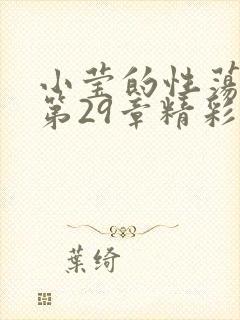 小莹的性荡
第29章精彩
葉绮